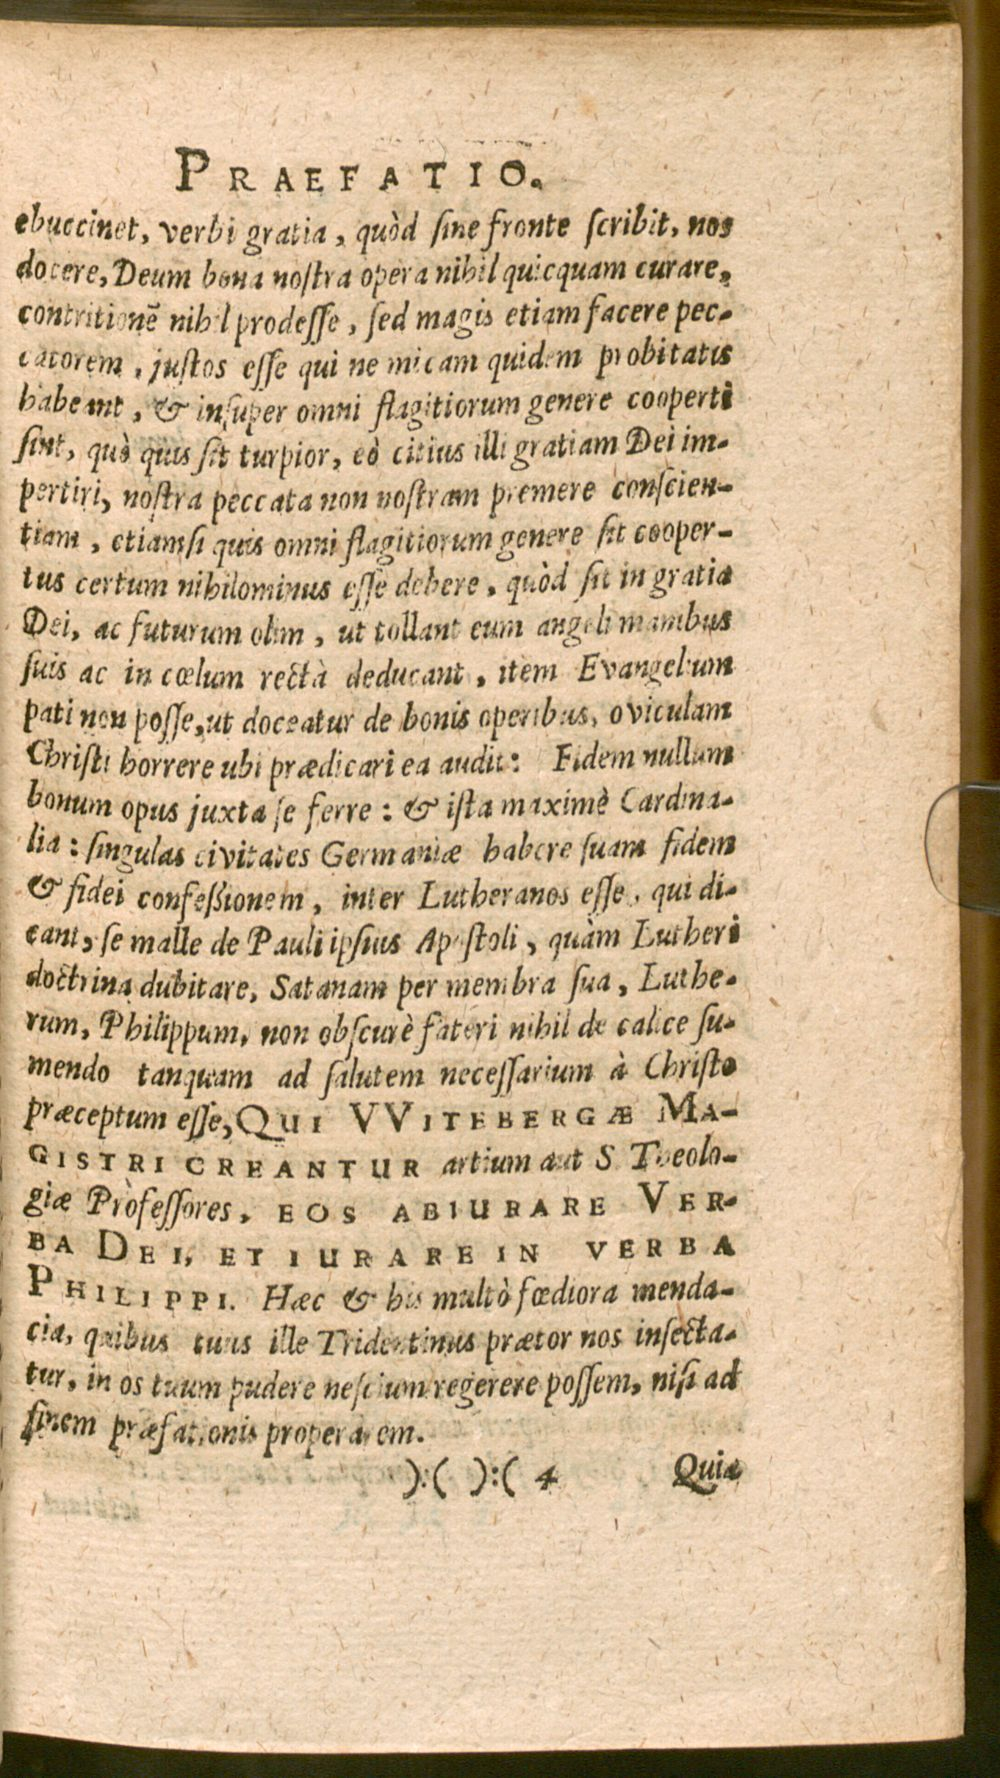 PRAEFATIO.
ebuccinet, verbi gratia, quòd ſine fronte ſcribit, nos
docere, Deum bona noſtra opera nihil quicquam curare,
contritionē nihil prodeſſe, ſed magis etiam facere pec-
catorem, juſtos eſſe qui ne micam quidem probitatis
habeant, & inſuper omni flagitiorum genere cooperti
ſint, quò quis ſit turpior, eò citius illi gratiam Dei im-
pertiri, noſtra peccata non noſtram premere conſcien-
tiam, etiamſi quis omni flagitiorum genere ſit cooper-
tus certum nihilominus eſſe debere, quòd ſit in gratia
Dei, ac futurum olim, ut tollant eum angeli manibus
ſuis ac in cœlum rectà deducant, item Evangelium
pati non poſſe, ut doceatur de bonis operibus, oviculam
Chriſti horrere ubi prædicari ea audit: Fidem nullum
bonum opus juxta ſe ferre: & iſta maximè Cardina-
lia: ſingulas civitates Germaniæ habere ſuam fidem
& fidei confeſsionem, inter Lutheranos eſſe, qui di-
cant, ſe malle de Pauli ipſius Apoſtoli, quàm Lutheri
doctrina dubitare, Satanam per membra ſua, Luthe-
rum, Philippum, non obſcurè fateri nihil de calice ſu-
mendo tanquam ad ſalutem neceſſarium à Chriſto
præceptum eſſe, QUI VVITEBERGÆ MA-
GISTRI CREANTUR artium aut S. Theolo-
giæ Pròfeſſores, EOS ABIURARE VER-
BA DEI, ET IURARE IN VERBA
PHILIPPI. Hæc & his multò fœdiora menda-
cia, quibus tuus ille Tridentinus prætor nos inſecta-
tur, in os tuum pudere neſcium regerere poſſem, niſi ad
finem præfationis properarem.
):( ):( 4 Quia